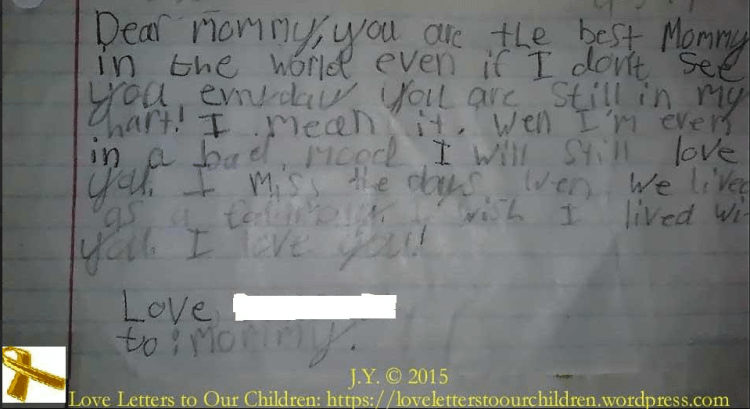 Dear mommy, you are the best Mommy
in the world even if I don't see
you you are still in my
hart! I mean it. Wen I'm even
in a bad mood I will still love
you. I miss the days wen we lived
as a I wish I lived wi
you. I love you!
Love,
to: Mommy.
J.Y. © 2015
Love Letters to Our Children: https://loveletterstoourchildren.wordpress.com